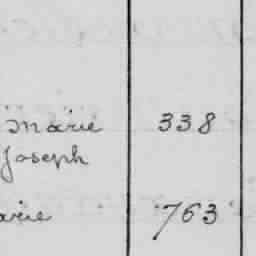 Marie 338
Joseph
arie 763